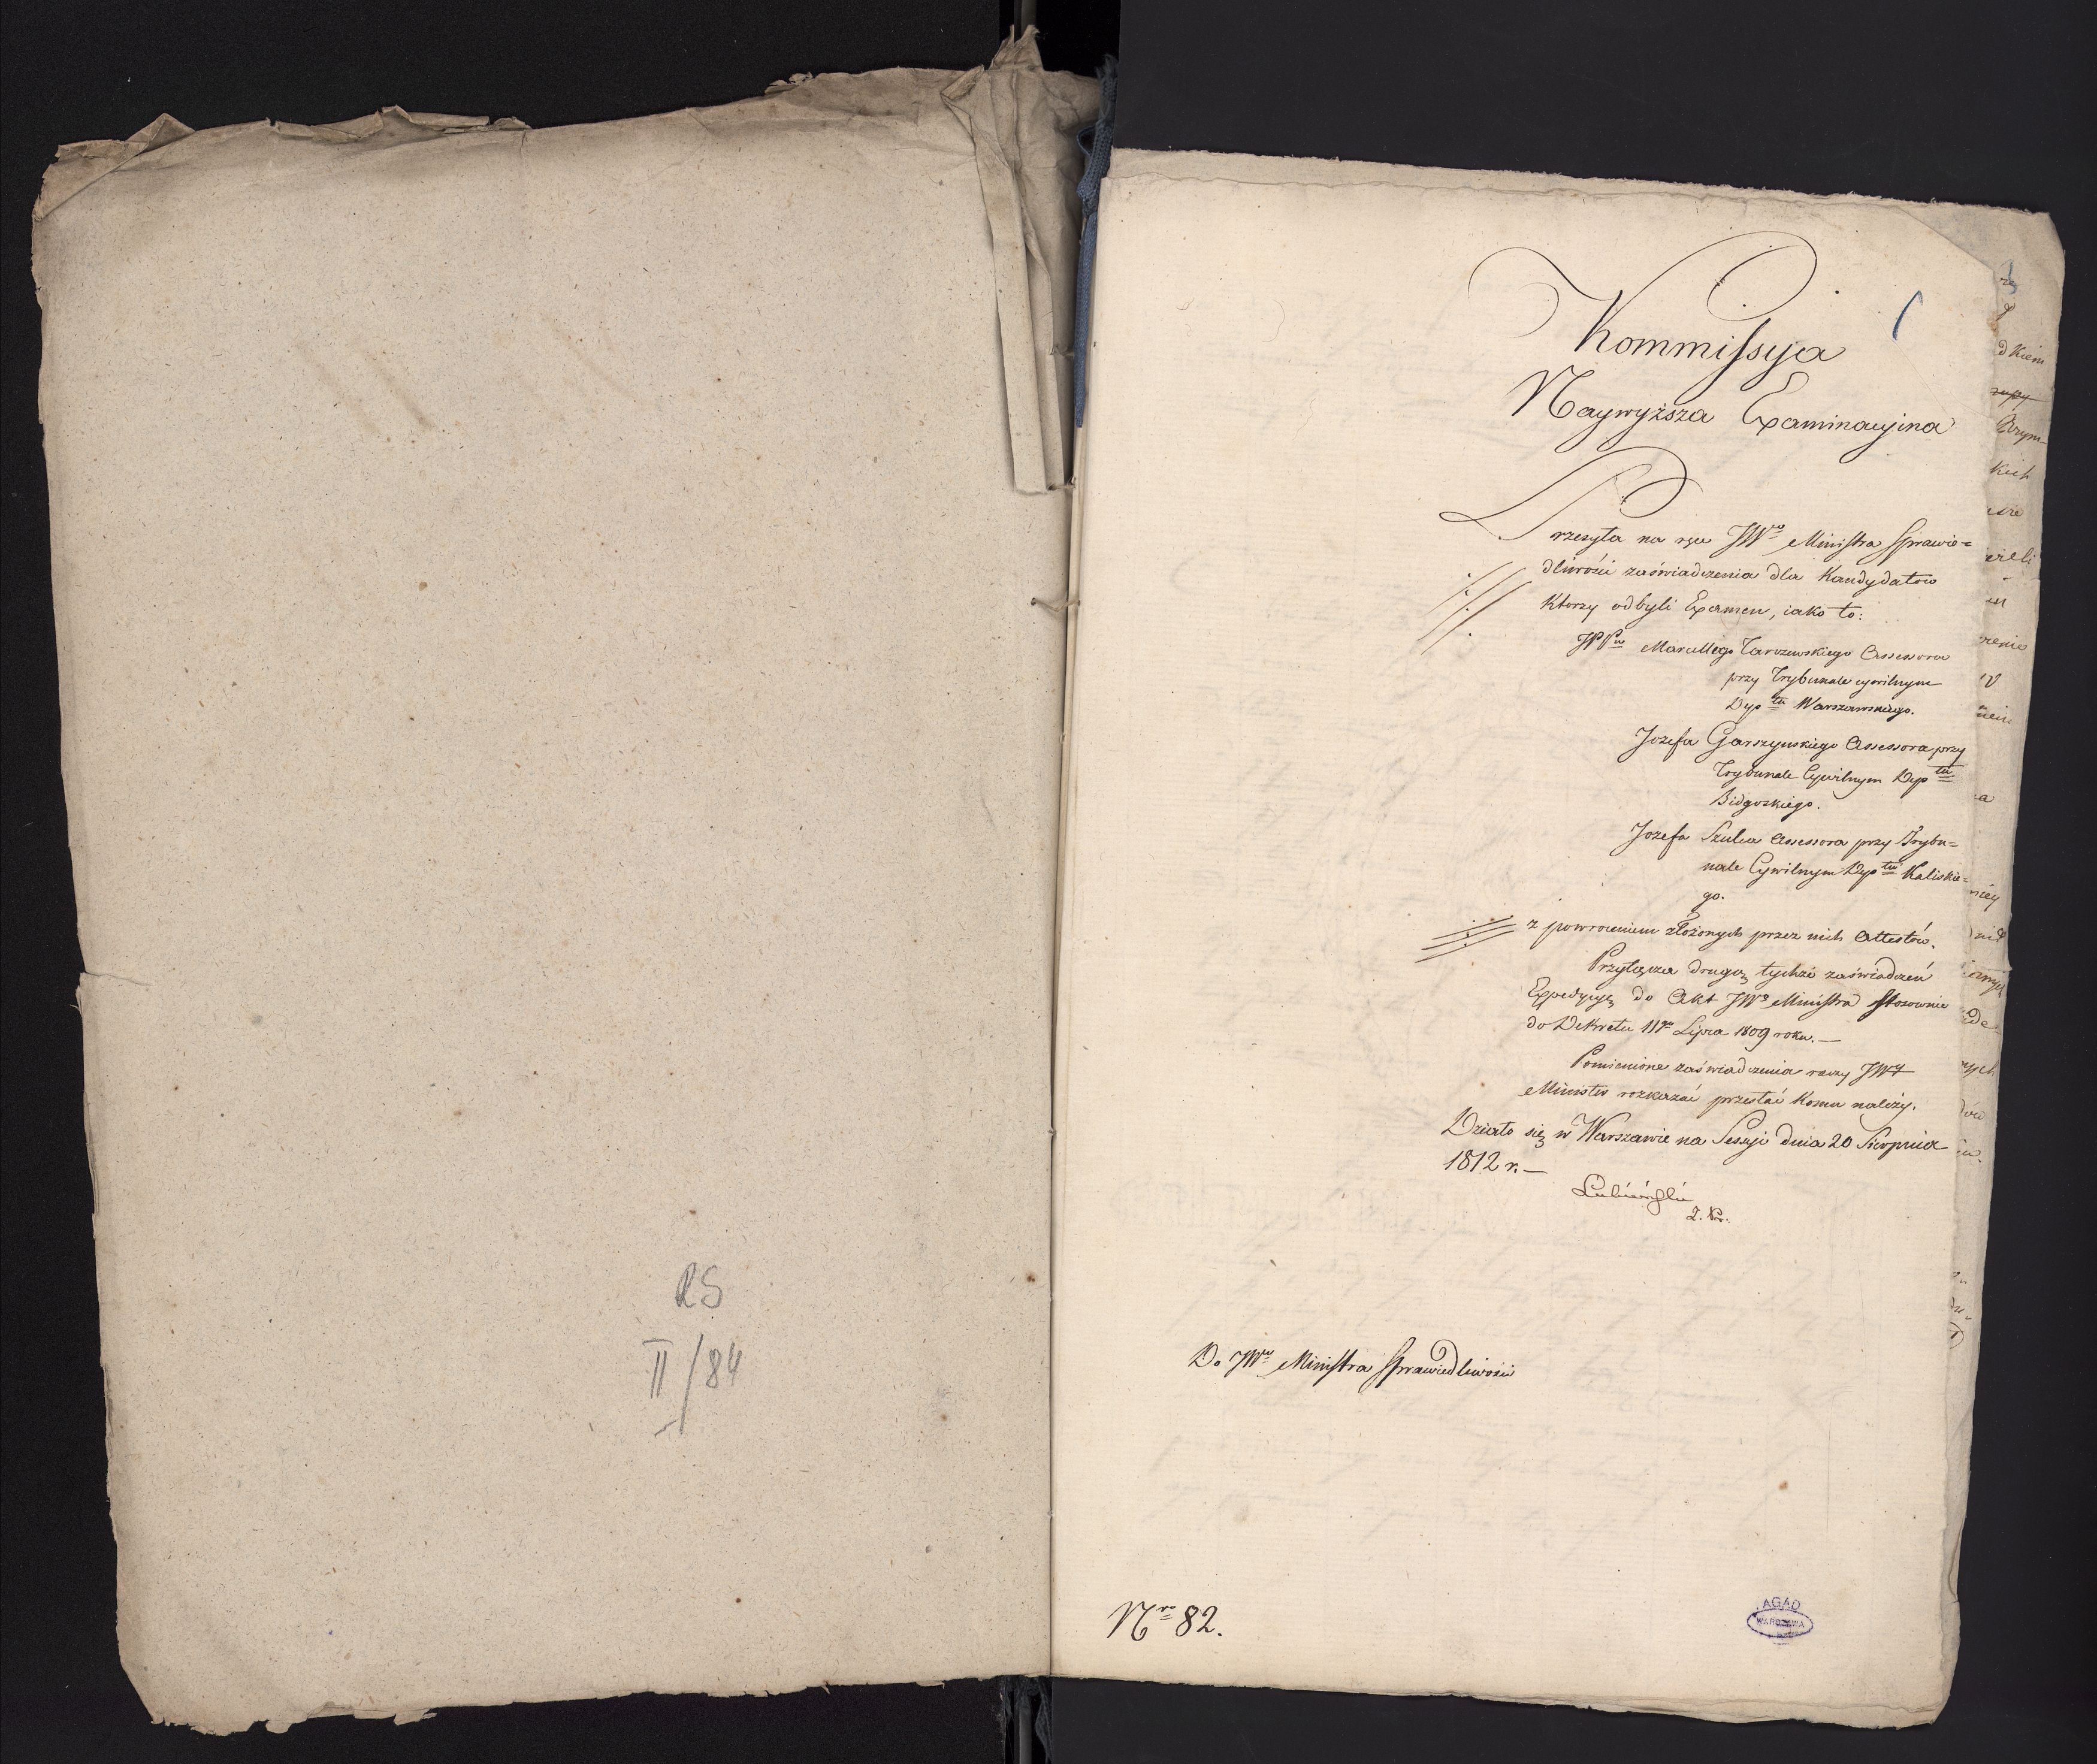 RS
II/84
1
Kommissya
Naywyższa Examinacyina
Przesyła na ręce JWo Ministra Sprawie=
dliwości zaświadczenia dla Kandydatow
Ktorzy odbyli Examen, iako to:
JPPw Marcellego Tarczewskiego Assessora
przy Trybunale cywilnym
Deptu Warszawskiego.
Jozefa Garszynskiego Assessora przy
Trybunale Cywilnym Deptu
Bidgoskiego.
Jozefa Szulca Assessora przy Trybu=
nale Cywilnym Deptu Kaliskie=
go.
z powroceniem złożonych przez nich Attestów.
Przyłącza drugą tychże zaświadczeń
Expedycyą do Akt JWo Ministra stosownie
do Dekretu 11go Lipca 1809 roku.—
Pomienione zaświadczenia raczy JW
Minister rozkazać przesłać Komu należy.
Działo się w Warszawie na Sessyi dnia 20 Sierpnia
1812 r.—
Do JWo Ministra Sprawiedliwości
Nro 82.
AGAD
WARSZAWA